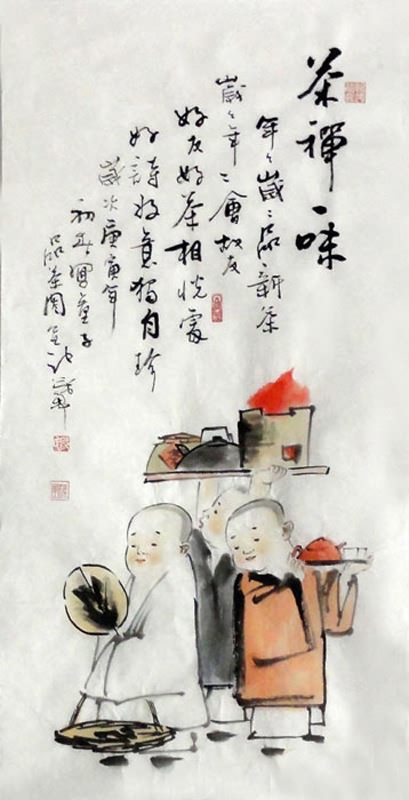 茶禪一味
年々歲々品新茶
歲々年々會故友
好友好茶相悦處
好詩好意獨自珍
歲次庚寅年
初春寫童子
品茶圖